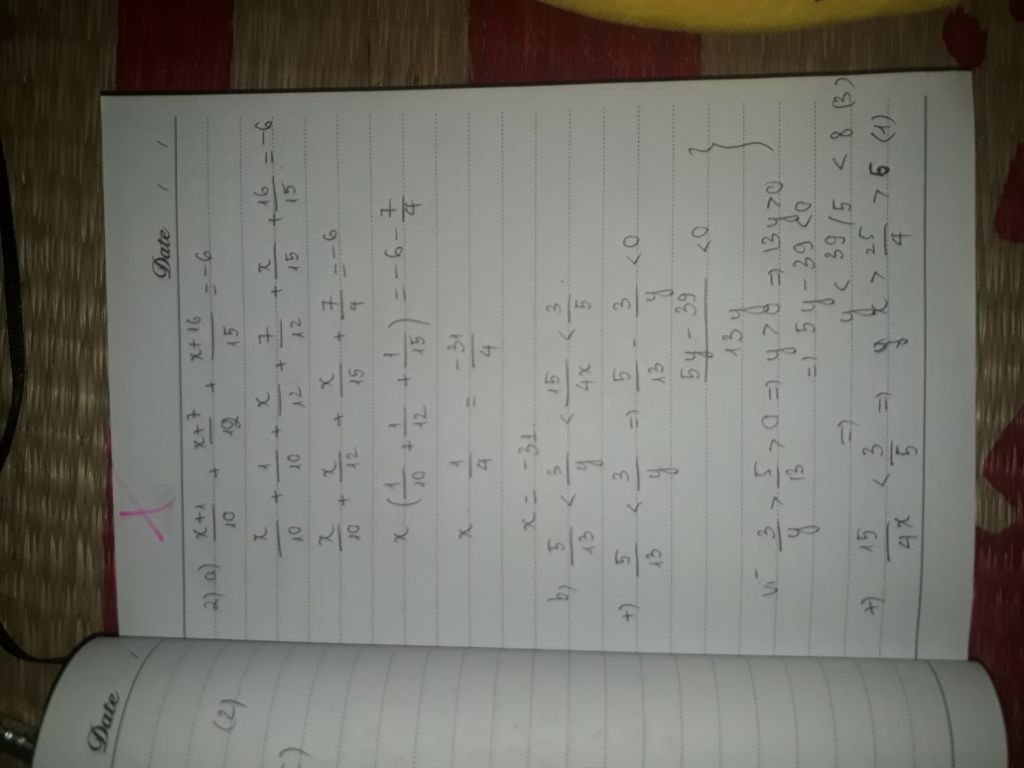 Date / /
2) a) x+1/10 + x+7/12 + x+16/15 = -6
x/10 + 1/10 + x/12 + 7/12 + x/15 + 16/15 = -6
x/10 + x/12 + x/15 + 7/4 = -6
x (1/10 + 1/12 + 1/15) = -6 - 7/4
x . 1/4 = -31/4
x = -31
b) 5/13 < 3/y < 15/4x < 3/5.
+) 5/13 < 3/y => 5/13 - 3/y < 0
5y - 39/13y < 0 }
Vì 3/y > 5/13 > 0 => y > 0 => 13y > 0
=> 5y - 39 < 0
=> y < 39/5 < 8 (3)
+) 15/4x < 3/5 => x > 25/4 > 6 (1)
Date /
(2)